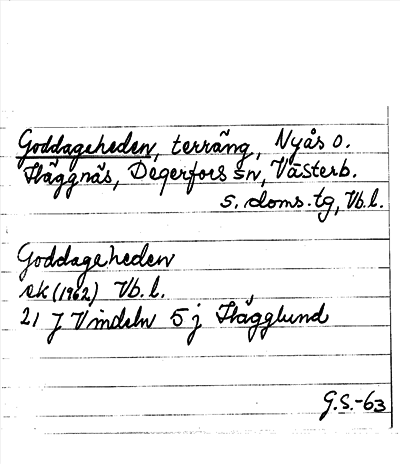 Goddageheden, terräng, Nyås o.
Häggnäs, Degerfors sn, Västerb.
s. doms. tg, Vb. l.
Goddageheden
ek (1962) Vb. l.
21 J Vindeln 5 j Hägglund
G.S.-63